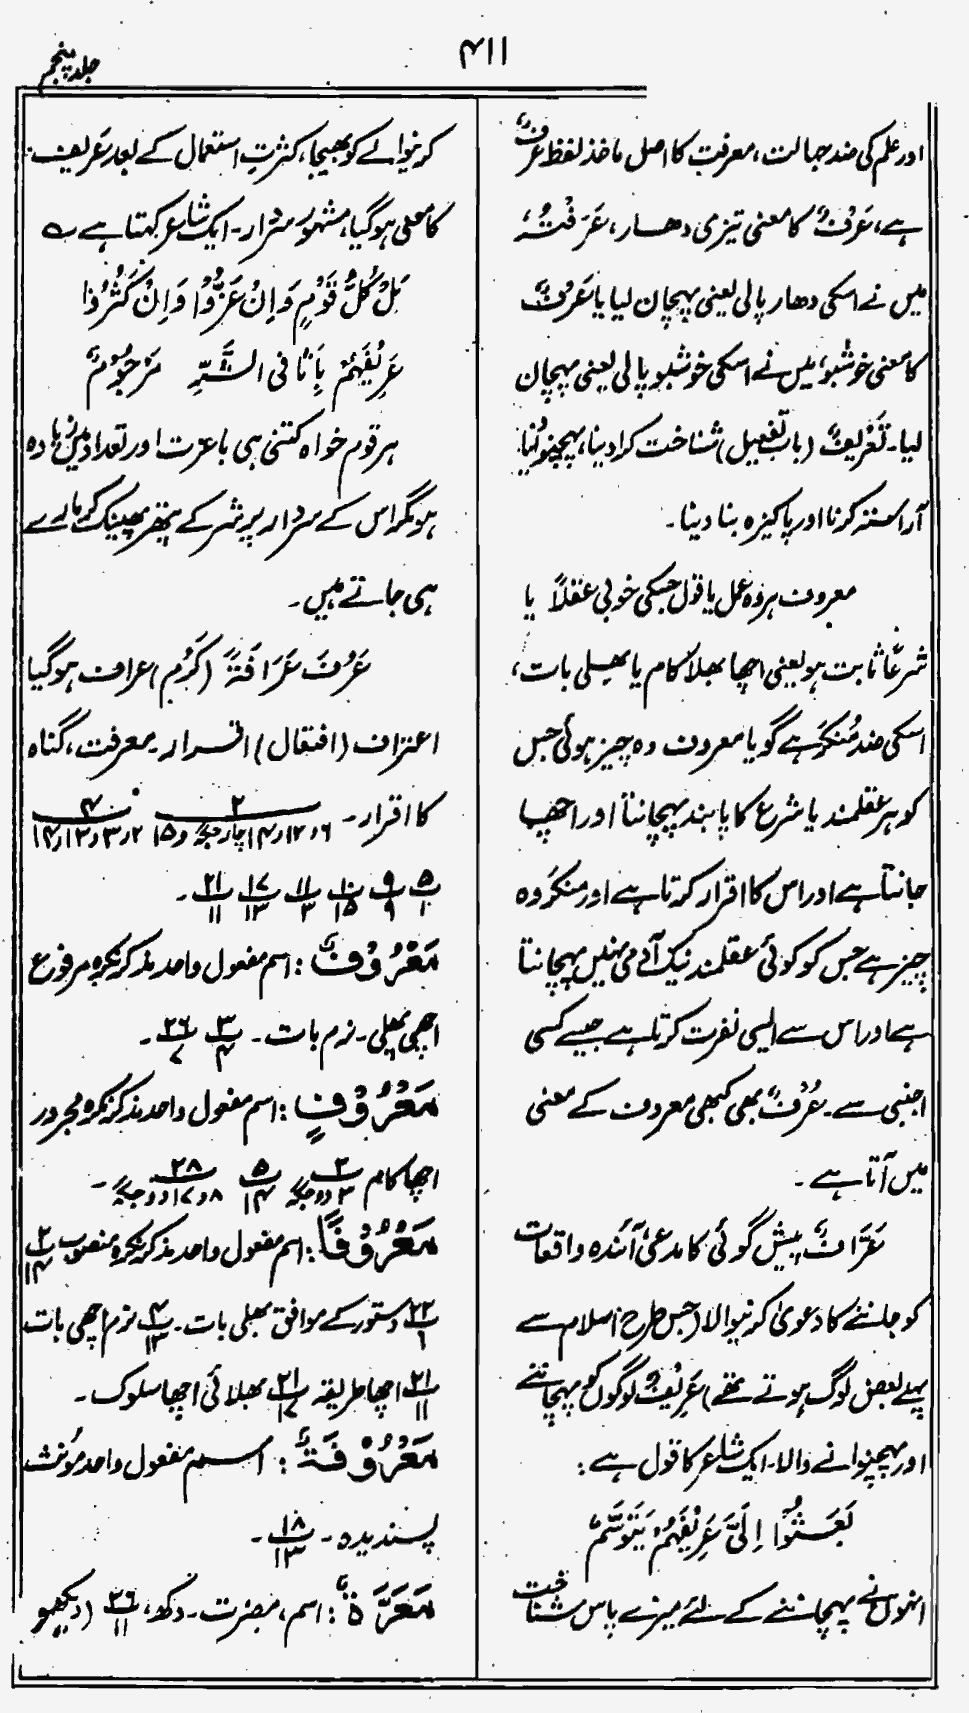 ۴۱۱
جلد پنجم
اور علم کی ضد جہالت، معرفت کا اصل ماخذ لفظ عَرْفٌ
ہے، عَرْفٌ کا معنی تیزی دھار، عَرَفْتُہٗ
میں نے اسکی دھار پالی یعنی پہچان لیا یا عَرْفٌ
کا معنی خوشبو، میں نے اسکی خوشبو پالی یعنی پہچان
لیا۔ تَعْرِیْفٌ (باب تفعیل) شناخت کرادینا، پہچنوانا
آراستہ کرنا اور پاکیزہ بنا دینا۔
معروف ہر وہ عمل یا قول جسکی خوبی عقلاً یا
شرعًا ثابت ہو یعنی اچھا بھلا کام یا بھلی بات،
اسکی ضد مُنکَر ہے گویا معروف وہ چیز ہوئی جس
کو ہر عقلمند یا شرع کا پابند پہچانتا اور اچھا
جانتا ہے اور اس کا اقرار کرتا ہے اور منکَر وہ
چیز ہے جس کو کوئی عقلمند نیک آدمی نہیں پہچانتا
ہے اور اس سے ایسی نفرت کرتا ہے جیسے کسی
اجنبی سے۔ عُرْفٌ بھی کبھی معروف کے معنی
میں آتا ہے۔
عَرَّافٌ، پیش گوئی کا مدعی آئندہ واقعات
کو جاننے کا دعویٰ کرنیوالا (جس طرح اسلام سے
پہلے بعض لوگ ہوتے تھے) عَرِیْفٌ لوگوں کو پہچاننے
اور پہچنوانے والا۔ ایک شاعر کا قول ہے:
بَعَثُوْا اِلَیَّ عَرِیْفَہُمْ یَتَوَسَّمُ
انہوں نے پہچاننے کے لئے میرے پاس شناخت
کرنیوالے کو بھیجا، کثرتِ استعمال کے بعد عَریف
کا معنی ہوگیا، مشہور سردار۔ ایک شاعر کہتا ہے ؎
بَلْ کُلُّ قَوْمٍ وَاِنْ عَزُّوْا وَاِنْ کَثُرُوْا
عَرِیْفُہُمْ بِاَثَافِی الشَّرِّ مَرْجُوْمٌ
ہر قوم خواہ کتنی ہی باعزت اور تعداد میں زیادہ
ہو مگر اس کے سردار پر شر کے پتھر پھینک کر مارے
ہی جاتے ہیں۔
عَرُفَ عَرَافَۃً (کَرُمَ) عراف ہوگیا
اعتراف (افتعال) اقرار۔ معرفت، گناہ
کا اقرار۔ ۲ ۶ و ۱۲ و ۱۴ چار جگہ و ۱۵ ۴ ۲ و ۳ و ۱۲ و ۱۴
۵ ۱ ۹ ۹ ۱۰ ۱۵ ۱۱ ۳ ۱۷ ۱۳ ۲۱ ۱۱ ۔
مَعْرُوْفٌ: اسم مفعول واحد مذکر نکرہ مرفوع
اچھی بھلی۔ نرم بات۔ ۳ ۴ ۲۶ ۷ ۔
مَعْرُوْفٍ: اسم مفعول واحد مذکر نکرہ مجرور
اچھا کام ۲ ۳ دو جگہ ۵ ۱۴ ۲۸ ۸ و ۱۷ دو جگہ ۔
مَعْرُوْفًا: اسم مفعول واحد مذکر نکرہ منصوب ۲ ۱۴
۲۲ ۱ دستور کے موافق بھلی بات۔ ۴ ۱۲ نرم اچھی بات
۲۱ ۱۱ اچھا طریقہ ۲۱ ۱۷ بھلائی اچھا سلوک۔
مَعْرُوْفَۃٌ: اسم مفعول واحد مؤنث
پسندیدہ۔ ۱۸ ۱۳ ۔
مَعَرَّۃٌ: اسم، مضرت۔ دکھ، ۲۶ ۱۱ (دیکھو